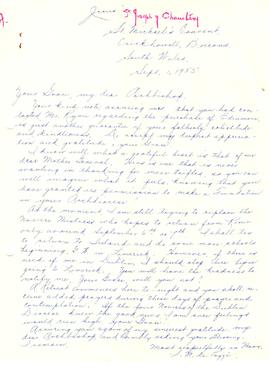 Sr Joseph of Chambéry
St. Michael's Convent,
Crickhowell, Brecond
South Wales,
Sept. 1, 1955
Your Grace, my dear Archbishop,
Your kind note assuring me that you had con-
tacted Mr. Ryan regarding the purchase of
is just another guarantee of your fatherly solicitude
and kindliness. Do accept my deepest apprecia-
tion and gratitude, your Grace.
I know well what a grateful heart is that of our
dear Mother General. Hers is one that is never
wanting in thanking for mere trifles, so you can
well imagine what it feels, knowing that you
have granted us permission to make a Foundation
in your Archdiocese!
At the moment I am still trying to replace the
Novice Mistress who hopes to return from Rome
only around September to 10th. I shall be
to return to Ireland and do some more schools
beginning in Limerick. However if there is
need of me in Dublin, I should stop there before
going to Limerick. You will have the kindness to
notify me, Your Grace, will you not?
A Retreat commences here to-night and you shall re-
ceive added prayers during these days of prayer and
contemplation. If the four of the Dublin
Diocese knew the good news, I am sure feelings
would run high, Your Grace.
Assuring you again of my sincerest gratitude, my
dear Archbishop and humbly asking your blessing
I remain,
Most respectfully in Our Lord,